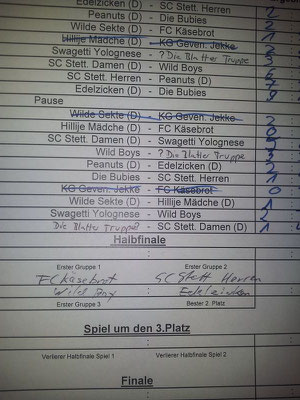 Edelzicken (D) - SC Stett. Herren 2
Peanuts (D) - Die Bubies
Wilde Sekte (D) - FC Käsebrot 2
Hillije Mädche (D) - KG Geven. Jekke
Swagetti Yolognese - ? Die Blatter Truppe 3
SC Stett. Damen (D) - Wild Boys
SC Stett. Herren - Peanuts (D)
Edelzicken (D) - Die Bubies
Pause
Wilde Sekte (D) - KG Geven. Jekke
Hillije Mädche (D) - FC Käsebrot
SC Stett. Damen (D) - Swagetti Yolognese
Wild Boys - ? Die Blatter Truppe
Peanuts (D) - Edelzicken (D)
Die Bubies - SC Stett. Herren
KG Geven. Jekke - FC Käsebrot
Wilde Sekte (D) - Hillije Mädche (D)
Swagetti Yolognese - Wild Boys
Die Blatter Truppe? - SC Stett. Damen (D)
Halbfinale
Erster Gruppe 1 Erster Gruppe 2
FC Käsebrot SC Stett Herren
Wild Boys Edelzicken
Erster Gruppe 3 Bester 2. Platz
Spiel um den 3.Platz
Verlierer Halbfinale Spiel 1 Verlierer Halbfinale Spiel 2
Finale